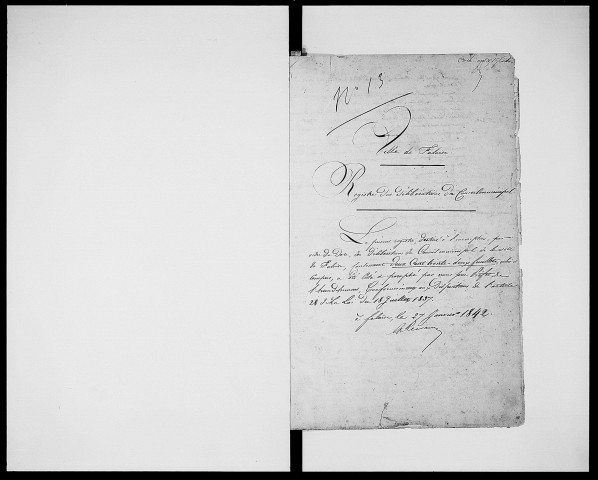 N° 13
Ville de Falaise
Registre des Délibérations du Conseil municipal
Le présent registre, destiné à l'inscription, par
ordre de Date, des Délibérations du Conseil municipal de la ville
de Falaise, contenant Deux Cent trente-deux feuillets,
a été coté et paraphé par nous Sous Préfet de
l'arrondissement, Conformément aux Dispositions de l'article
28 de La Loi du 18 Juillet 1837.
à falaise, le 27 Janvier 1842.